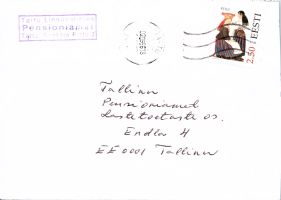 Pensioniamet
2.50 EESTI
Tallinn
Pensioniamet
Lastetoetuste os.
Endla 4
EE0001 Tallinn